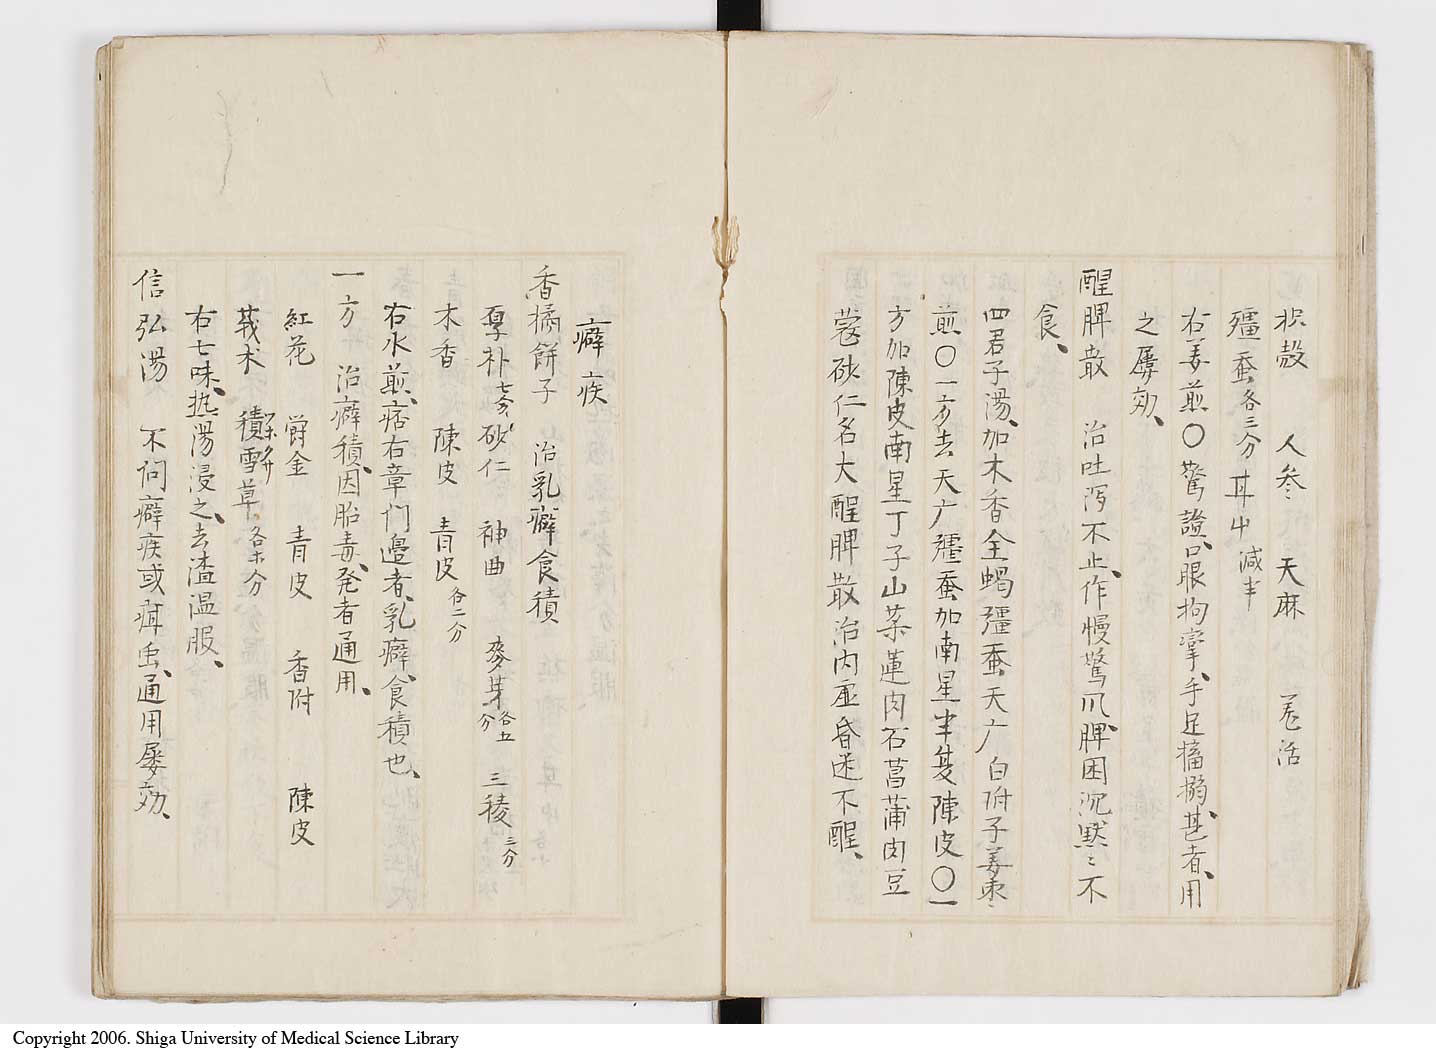 枳殻　人参　天麻　羌活
殭蚕各三分 甘中減半
右姜煎〇驚證口眼拘攣、手足搐搦、甚者、用
之屢効、
醒脾散　治吐瀉不止、作慢驚爪、脾困沉黙〻不
食、
四君子湯、加木香全蝎殭蚕天广白附子姜枣
煎〇一方去天广殭蚕加南星半夏陳皮〇一
方加陳皮南星丁子山薬蓮肉石菖蒲肉豆
蔲砂仁名大醒脾散治内虚昏迷不醒、
癖疾
香橘餅子　治乳癖食積
厚朴 砂仁　神曲　麥芽各五分　三稜三分
木香　陳皮　青皮各二分
右水煎、痞右章门邉者、乳癖、食積也、
一方　治癖積、因胎毒、発者通用、
紅花　欝金　青皮　香附　陳皮
莪朮　積雪草各 分
右七味、热湯浸之、去渣温服、
信弘湯　不问癖疾或疳虫、通用屢効、
Copyright 2006. Shiga University of Medical Science Library